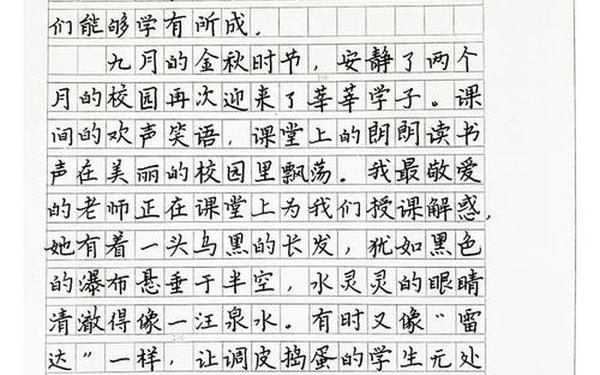 们能够学有所成.
九月的金秋时节，安静了两个
月的校园再次迎来了莘莘学子。课
间的欢声笑语，课堂上的朗朗读书
声在美丽的校园里飘荡。我最敬爱
的老师正在课堂上为我们授课解惑，
她有着一头乌黑的长发，犹如黑色
的瀑布悬垂于半空，水灵灵的眼睛
清澈得像一汪泉水。有时又像“雷
达”一样，让调皮捣蛋的学生无处